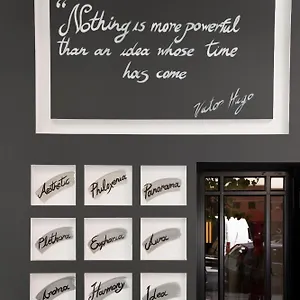 "Nothing is more powerful
than an idea whose time
has come
Victor Hugo
Aesthetic Philoxenia Panorama
Plethora Euphoria Aura
Aroma Harmony Idea